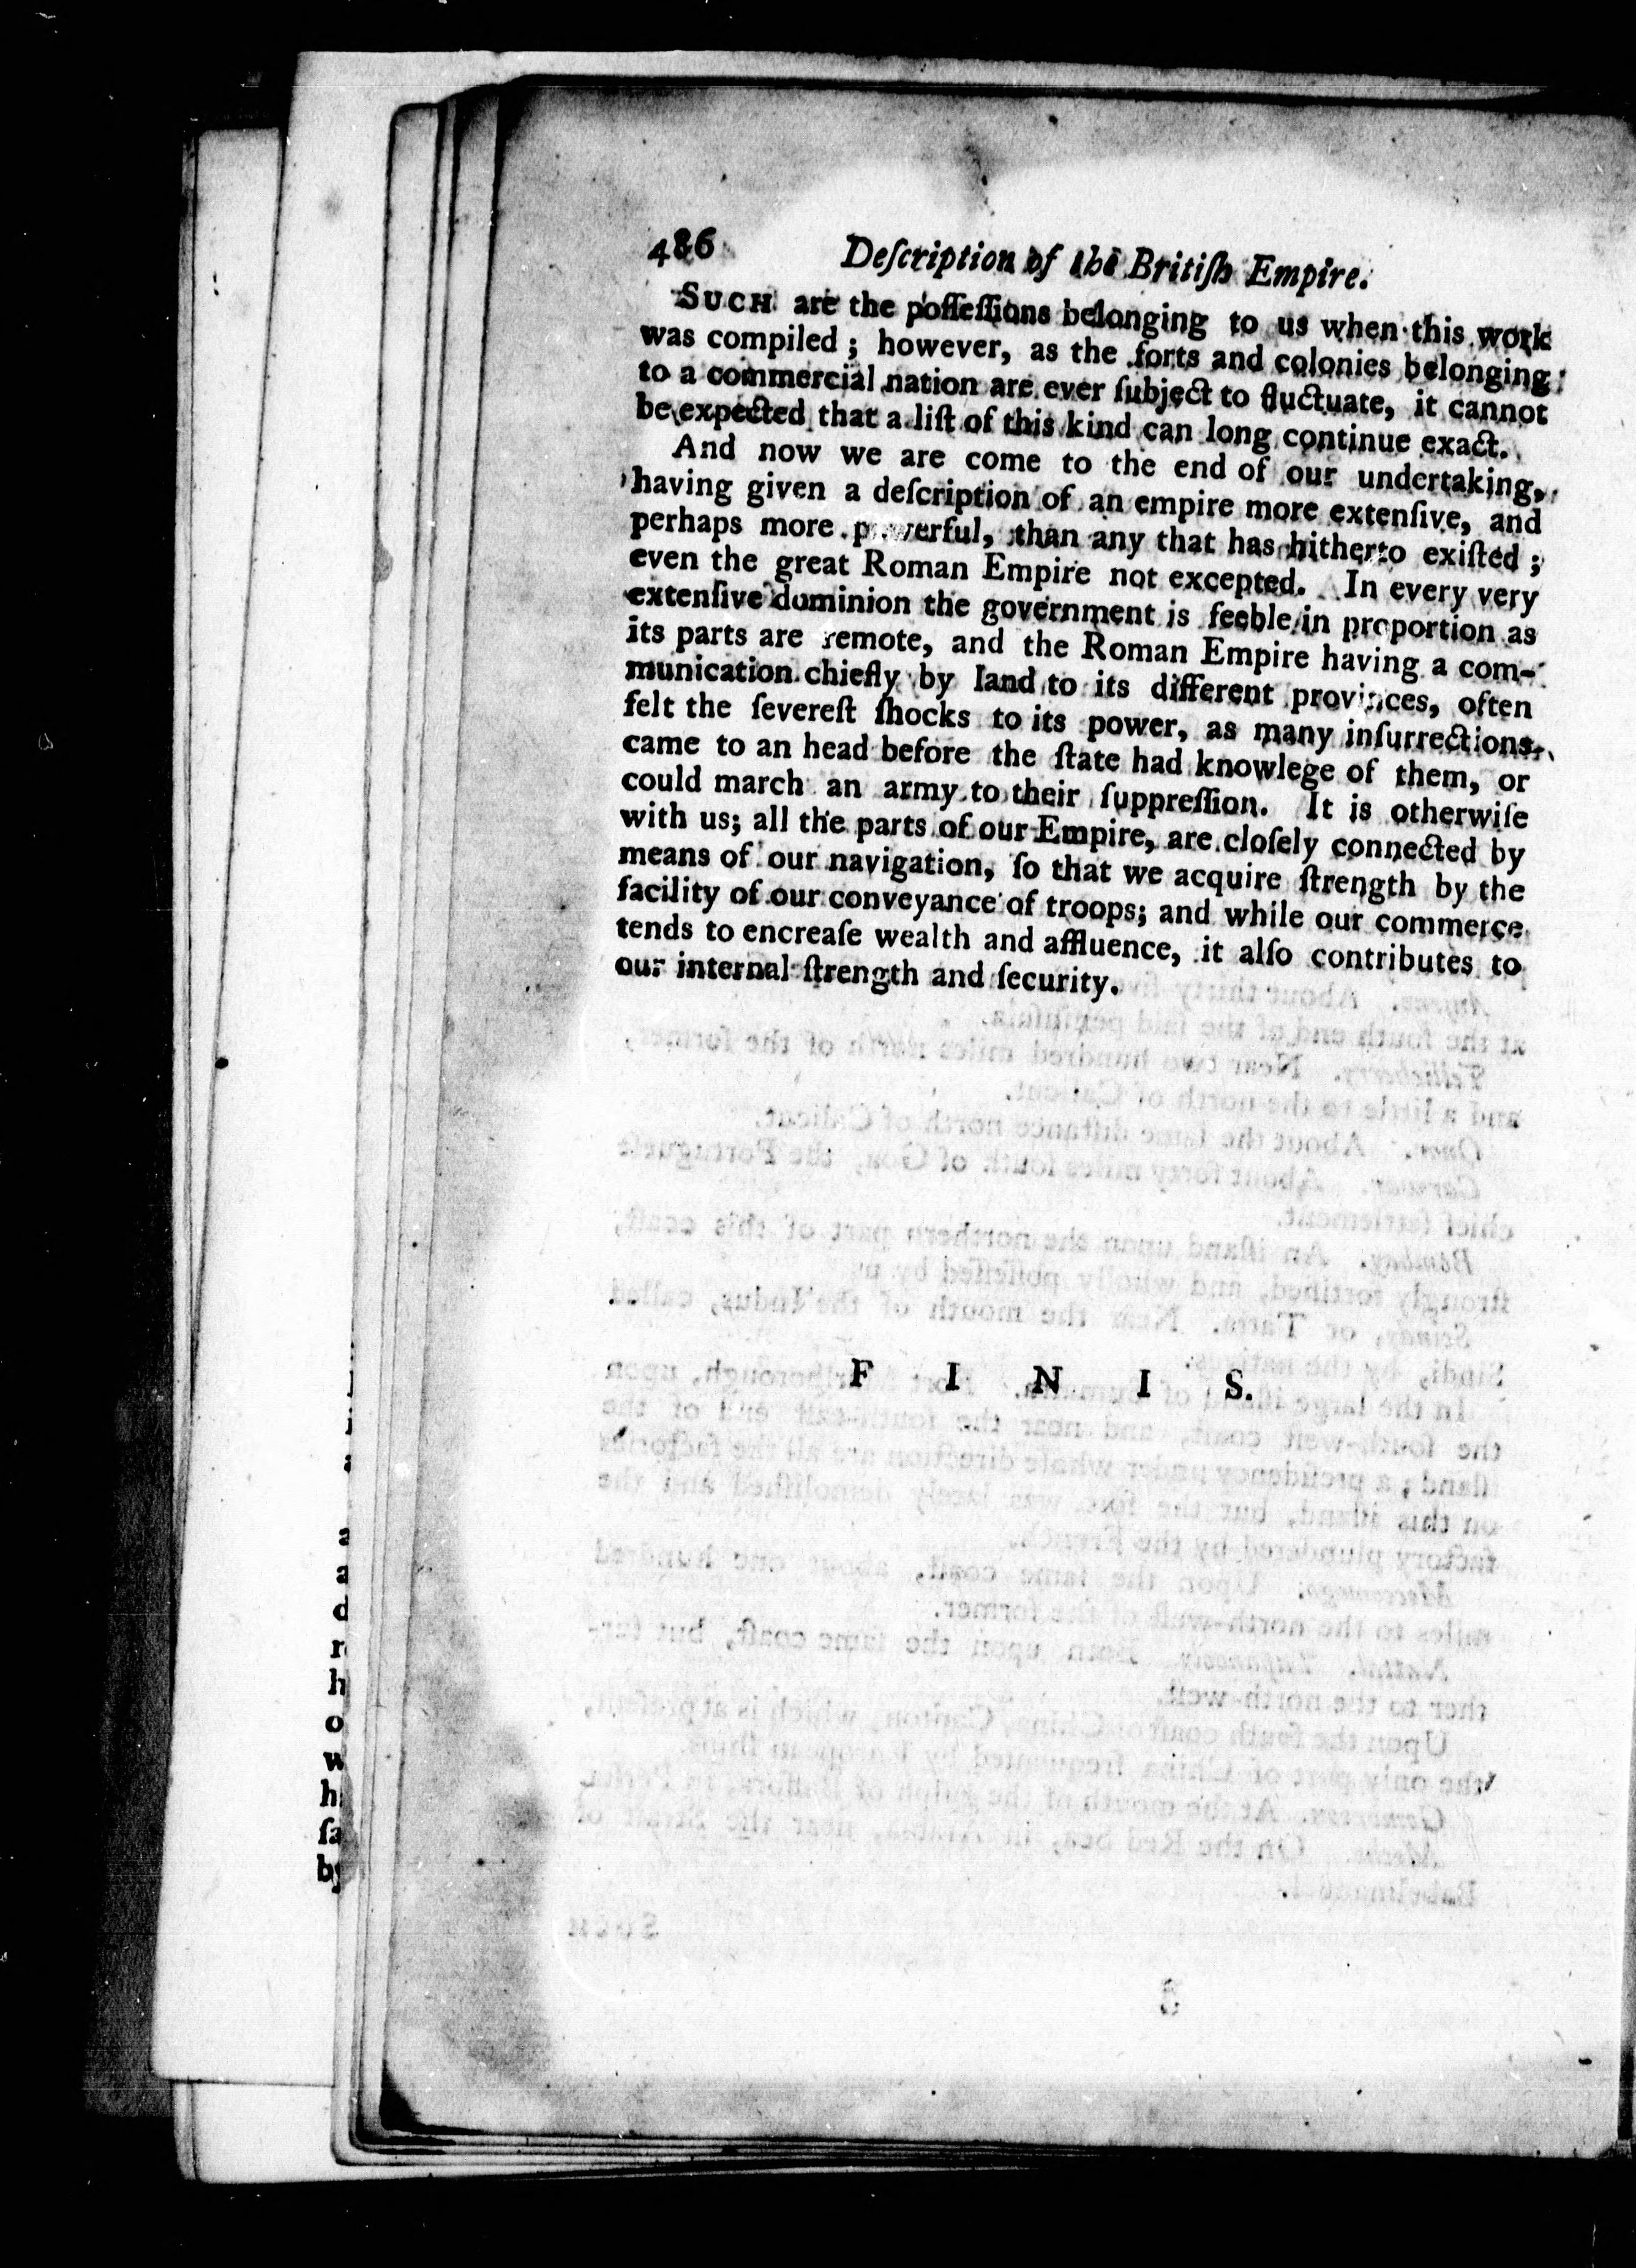 486 Deſcription of the Britiſh Empire.
SUCH are the poſſeſſions belonging to us when this work
was compiled; however, as the forts and colonies belonging
to a commercial nation are ever ſubject to fluctuate, it cannot
be expected that a liſt of this kind can long continue exact.
And now we are come to the end of our undertaking,
having given a deſcription of an empire more extenſive, and
perhaps more powerful, than any that has hitherto exiſted;
even the great Roman Empire not excepted. In every very
extenſive dominion the government is feeble in proportion as
its parts are remote, and the Roman Empire having a com-
munication chiefly by land to its different provinces, often
felt the ſevereſt ſhocks to its power, as many inſurrections
came to an head before the ſtate had knowlege of them, or
could march an army to their ſuppreſſion. It is otherwiſe
with us; all the parts of our Empire, are cloſely connected by
means of our navigation, ſo that we acquire ſtrength by the
facility of our conveyance of troops; and while our commerce
tends to encreaſe wealth and affluence, it alſo contributes to
our internal ſtrength and ſecurity.
F I N I S.